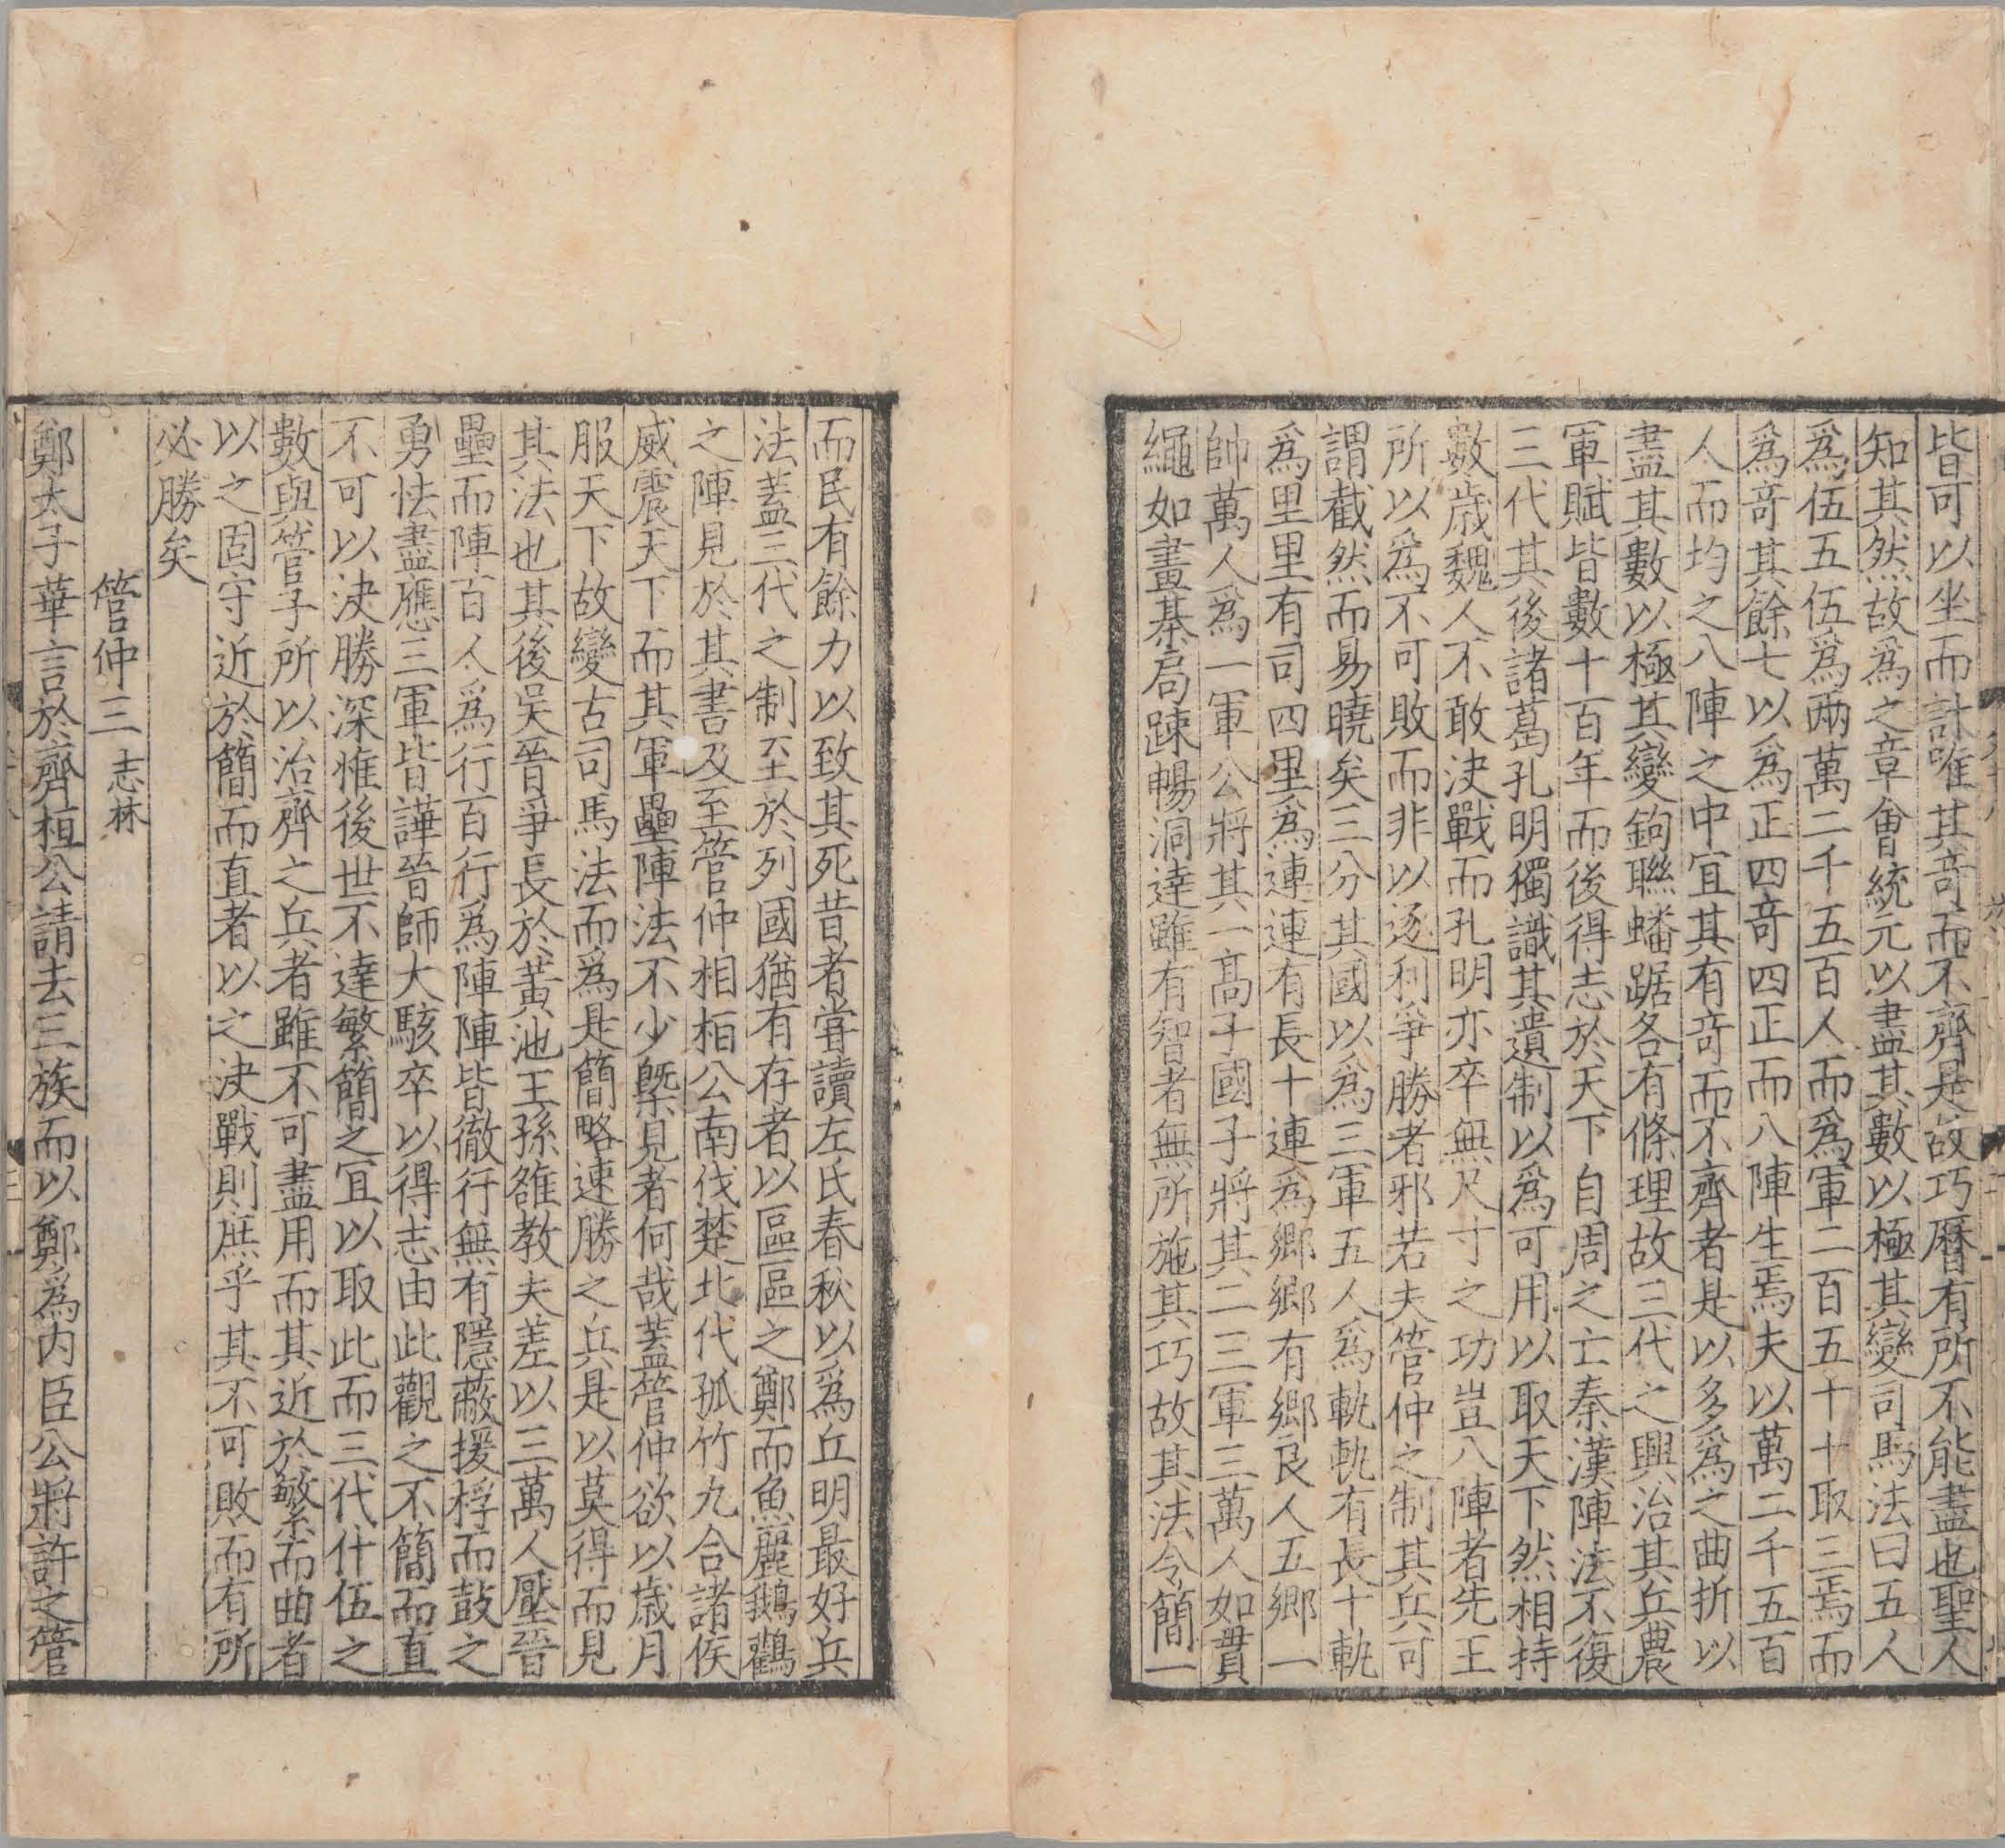 皆可以坐而計唯其竒而不齊是故巧曆有所不能盡也聖人
知其然故爲之章會統元以盡其數以極其變司馬法曰五人
爲伍五伍爲兩萬二千五百人而爲軍二百五十十取三焉而
爲竒其餘七以爲正四竒四正而八陣生焉夫以萬二千五百
人而均之八陣之中宜其有竒而不齊者是以多爲之曲折以
盡其數以極其變鉤聯蟠踞各有條理故三代之興治其兵農
軍賦皆數十百年而後得志於天下自周之亡秦漢陣法不復
三代其後諸葛孔明獨識其遺制以爲可用以取天下然相持
數歲魏人不敢决戰而孔明亦卒無尺寸之功豈八陣者先王
所以爲不可敗而非以逐利爭勝者邪若夫管仲之制其兵可
謂截然而易曉矣三分其國以爲三軍五人爲軌軌有長十軌
爲里里有司四里爲連連有長十連爲鄉鄉有鄉良人五鄉一
帥萬人爲一軍公將其一髙子國子將其二三軍三萬人如貫
繩如畫棊局踈暢洞達雖有智者無所施其巧故其法令簡一
而民有餘力以致其死昔者甞讀左氏春秋以爲丘明最好兵
法蓋三代之制至於列國猶有存者以區區之鄭而魚麗鵝鸛
之陣見於其書及至管仲相桓公南伐楚北伐孤竹九合諸侯
威震天下而其軍壘陣法不少槩見者何哉蓋管仲欲以歳月
服天下故變古司馬法而爲是簡略速勝之兵是以莫得而見
其法也其後吴晉爭長於黄池王孫雒教夫差以三萬人壓晉
壘而陣百人爲行百行爲陣陣皆徹行無有隱蔽援桴而鼓之
勇怯盡應三軍皆譁晉師大駭卒以得志由此觀之不簡而直
不可以决勝深惟後世不達繁簡之宜以取此而三代什伍之
數與管子所以治齊之兵者雖不可盡用而其近於繁而曲者
以之固守近於簡而直者以之决戰則庶乎其不可敗而有所
必勝矣
管仲三志林
鄭太子華言於齊桓公請去三族而以鄭爲内臣公將許之管